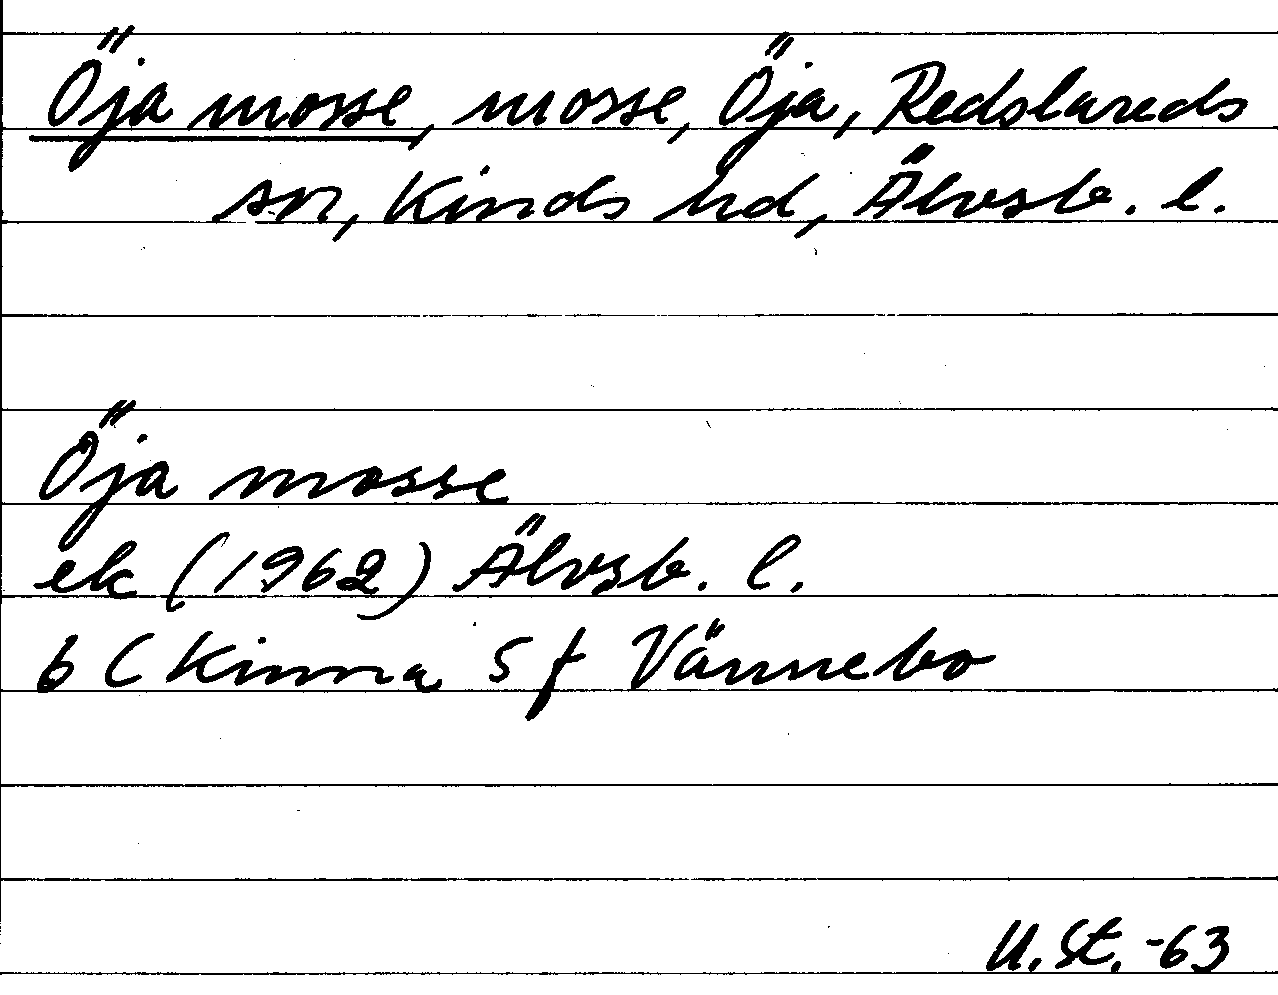 Öja mosse, mosse, Öja, Redslareds
sn, Kinds hd, Älvsb. l.
Öja mosse
ek (1962) Älvsb. l.
6 C Kinna S f Vännebo
U. St. -63